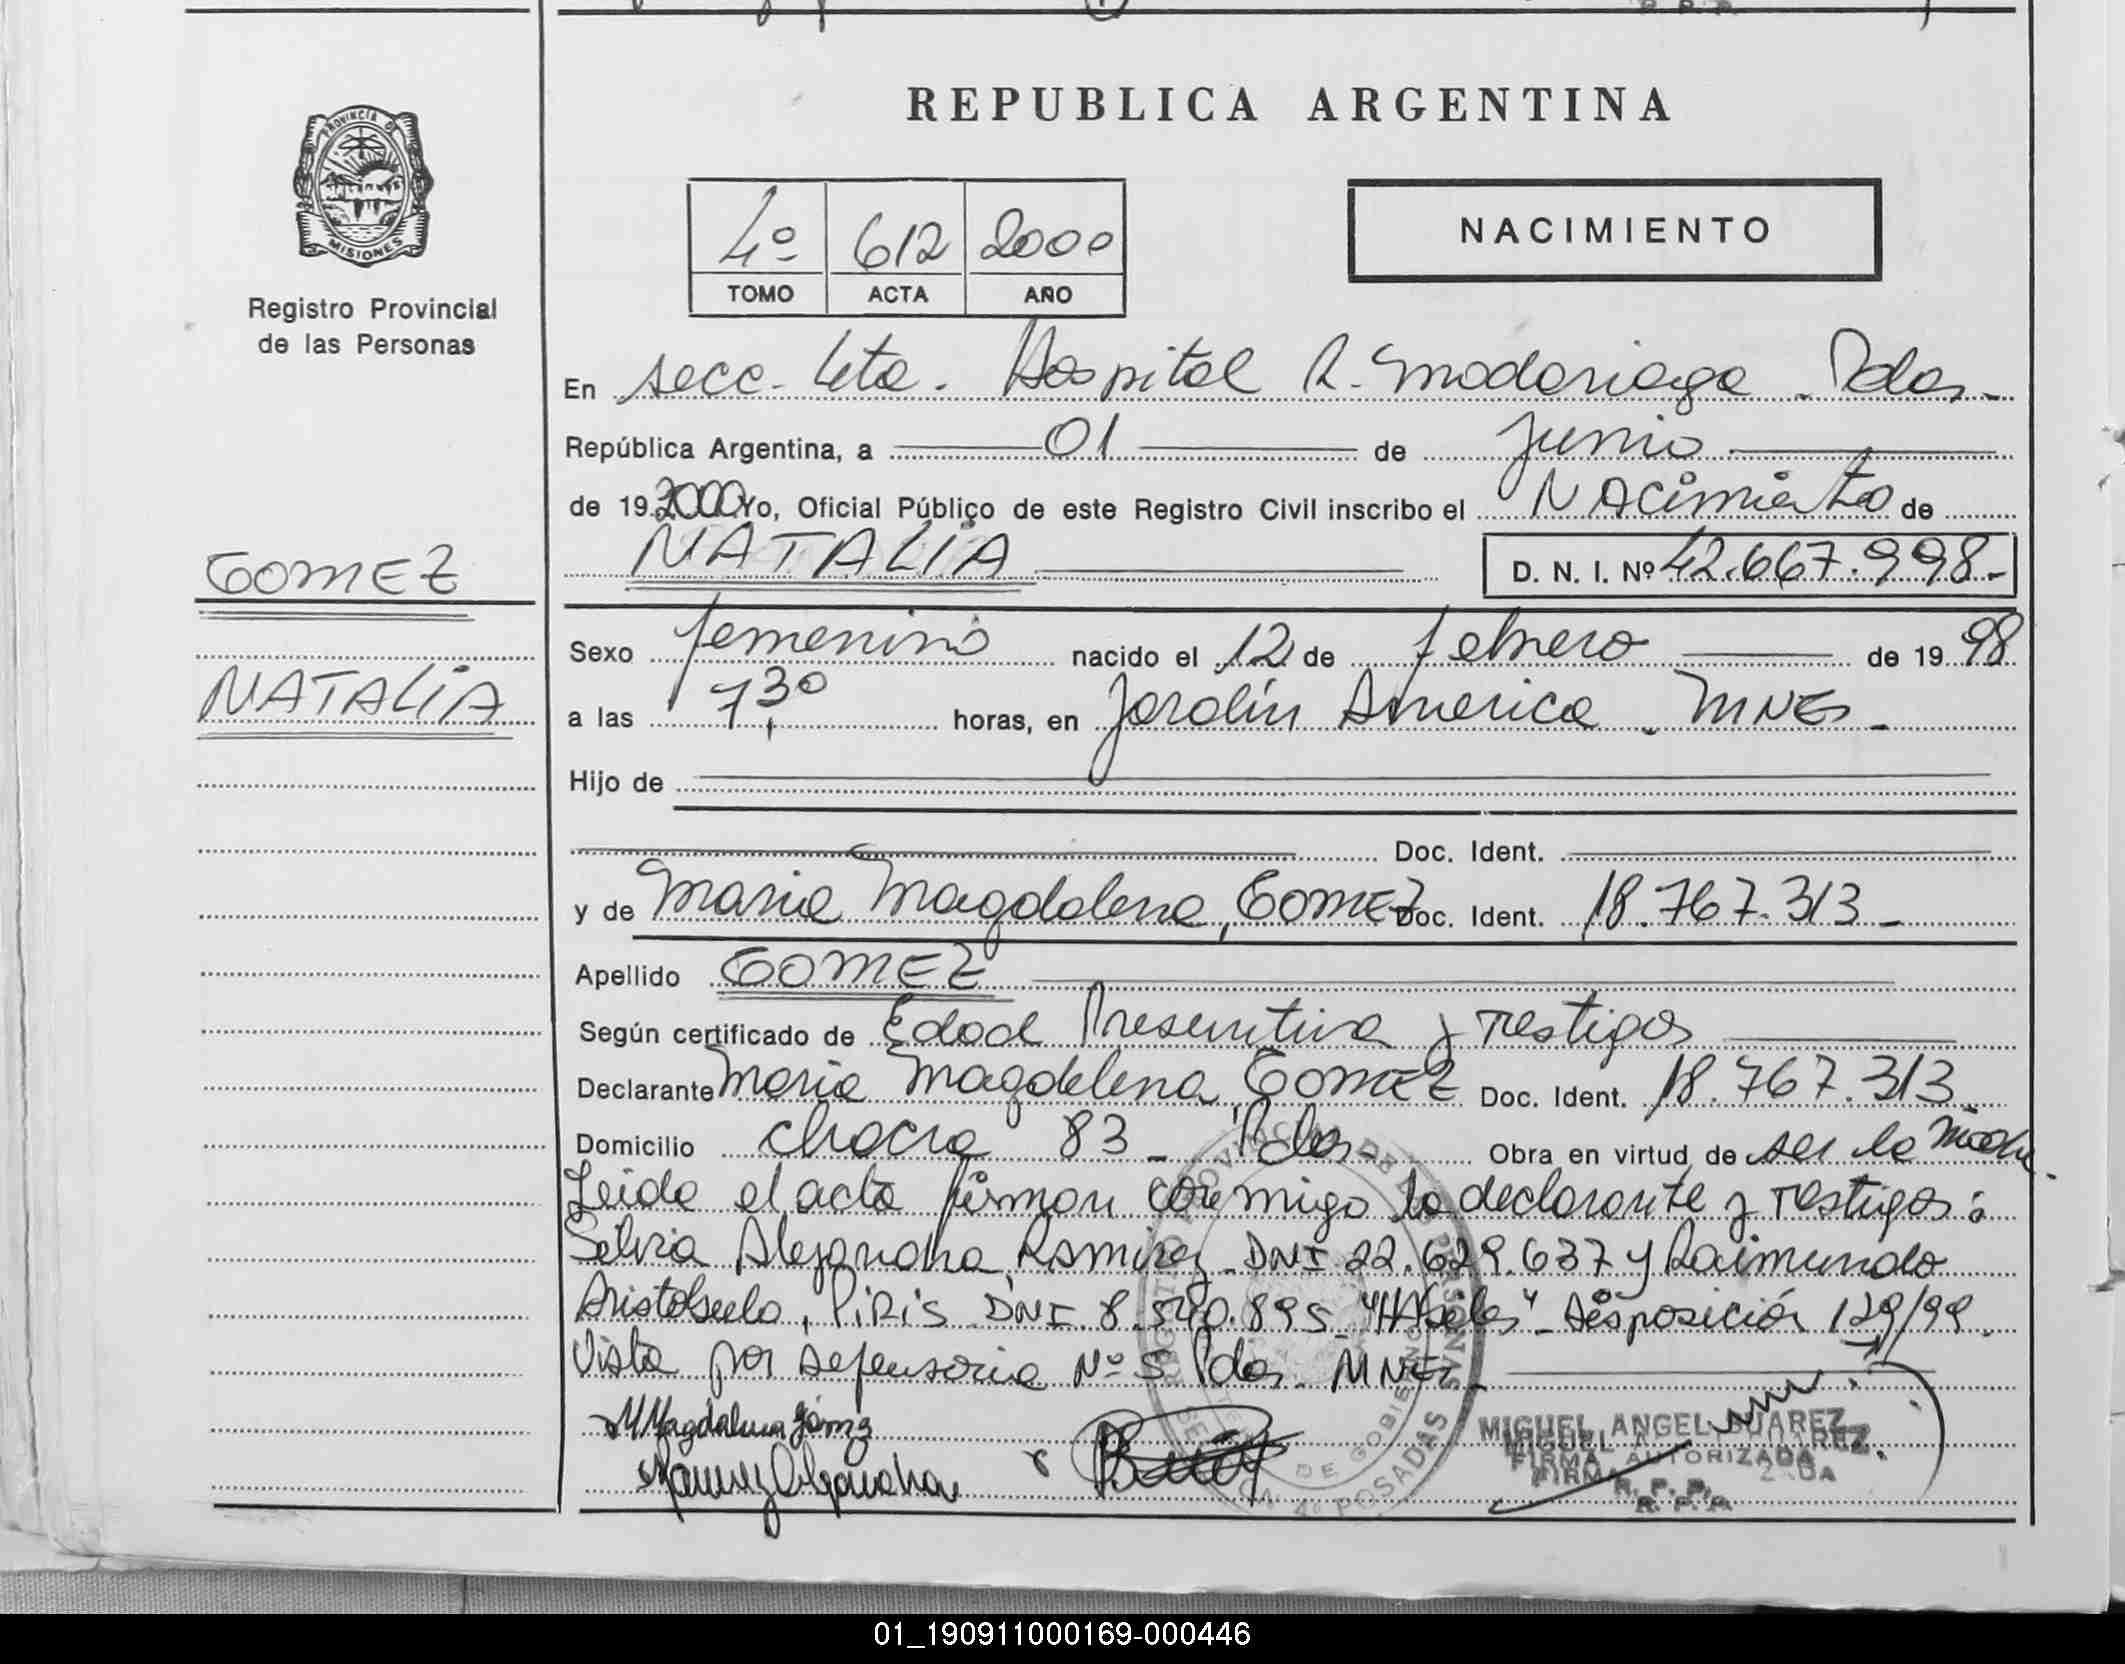 REPUBLICA ARGENTINA
PROVINCIA DE
MISIONES
Registro Provincial
de las Personas
4º 612 2000
TOMO ACTA AÑO
NACIMIENTO
En secc. 4ta. Hospital R. Madariaga - Pdas -
República Argentina, a 01 de Junio
de 19 2000 Yo, Oficial Público de este Registro Civil inscribo el NACimiento de
NATALiA D. N. I. Nº 42.667.998.-
GOMEZ
NATALiA
Sexo femenino nacido el 12 de febrero de 19 98
a las 7,30 horas, en Jardín America - MNES -
Hijo de
Doc. Ident.
y de Maria Magdalena, GOMEZ Doc. Ident. 18.767.313 -
Apellido GOMEZ
Según certificado de Edad Presuntiva y Testigos
Declarante Maria Magdalena GOMEZ Doc. Ident. 18.767.313
Domicilio chacra 83 - Pdas - Obra en virtud de ser la Madre.
Leida el acta firman conmigo la declarante y Testigos:
Silvia Alejandra, Ramirez DNI 22.629.637 y Raimundo
Aristobulo, PiRiS DNI 8.540.895 - Disposición 129/99.
Vista por defensoria Nº 5 Pdas - MNES -
M Magdalena Gómez
Ramirez Alejandra
MIGUEL ANGEL SUAREZ
FIRMA AUTORIZADA
R. P. P.
01_190911000169-000446